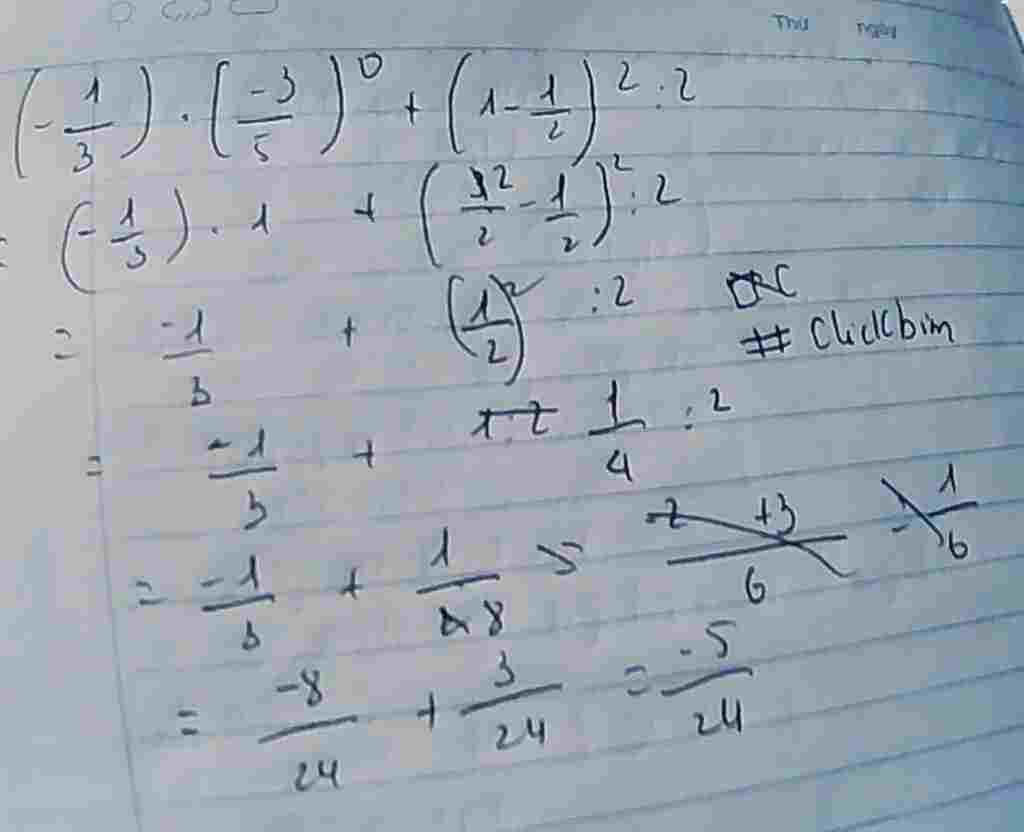 Thứ ngày
(-1/3) . (-3/5)^0 + (1 - 1/2)^2 : 2
= (-1/3) . 1 + (2/2 - 1/2)^2 : 2
= -1/3 + (1/2)^2 : 2
# Clickbim
= -1/3 + 1/4 : 2
= -1/3 + 1/8
= -8/24 + 3/24 = -5/24